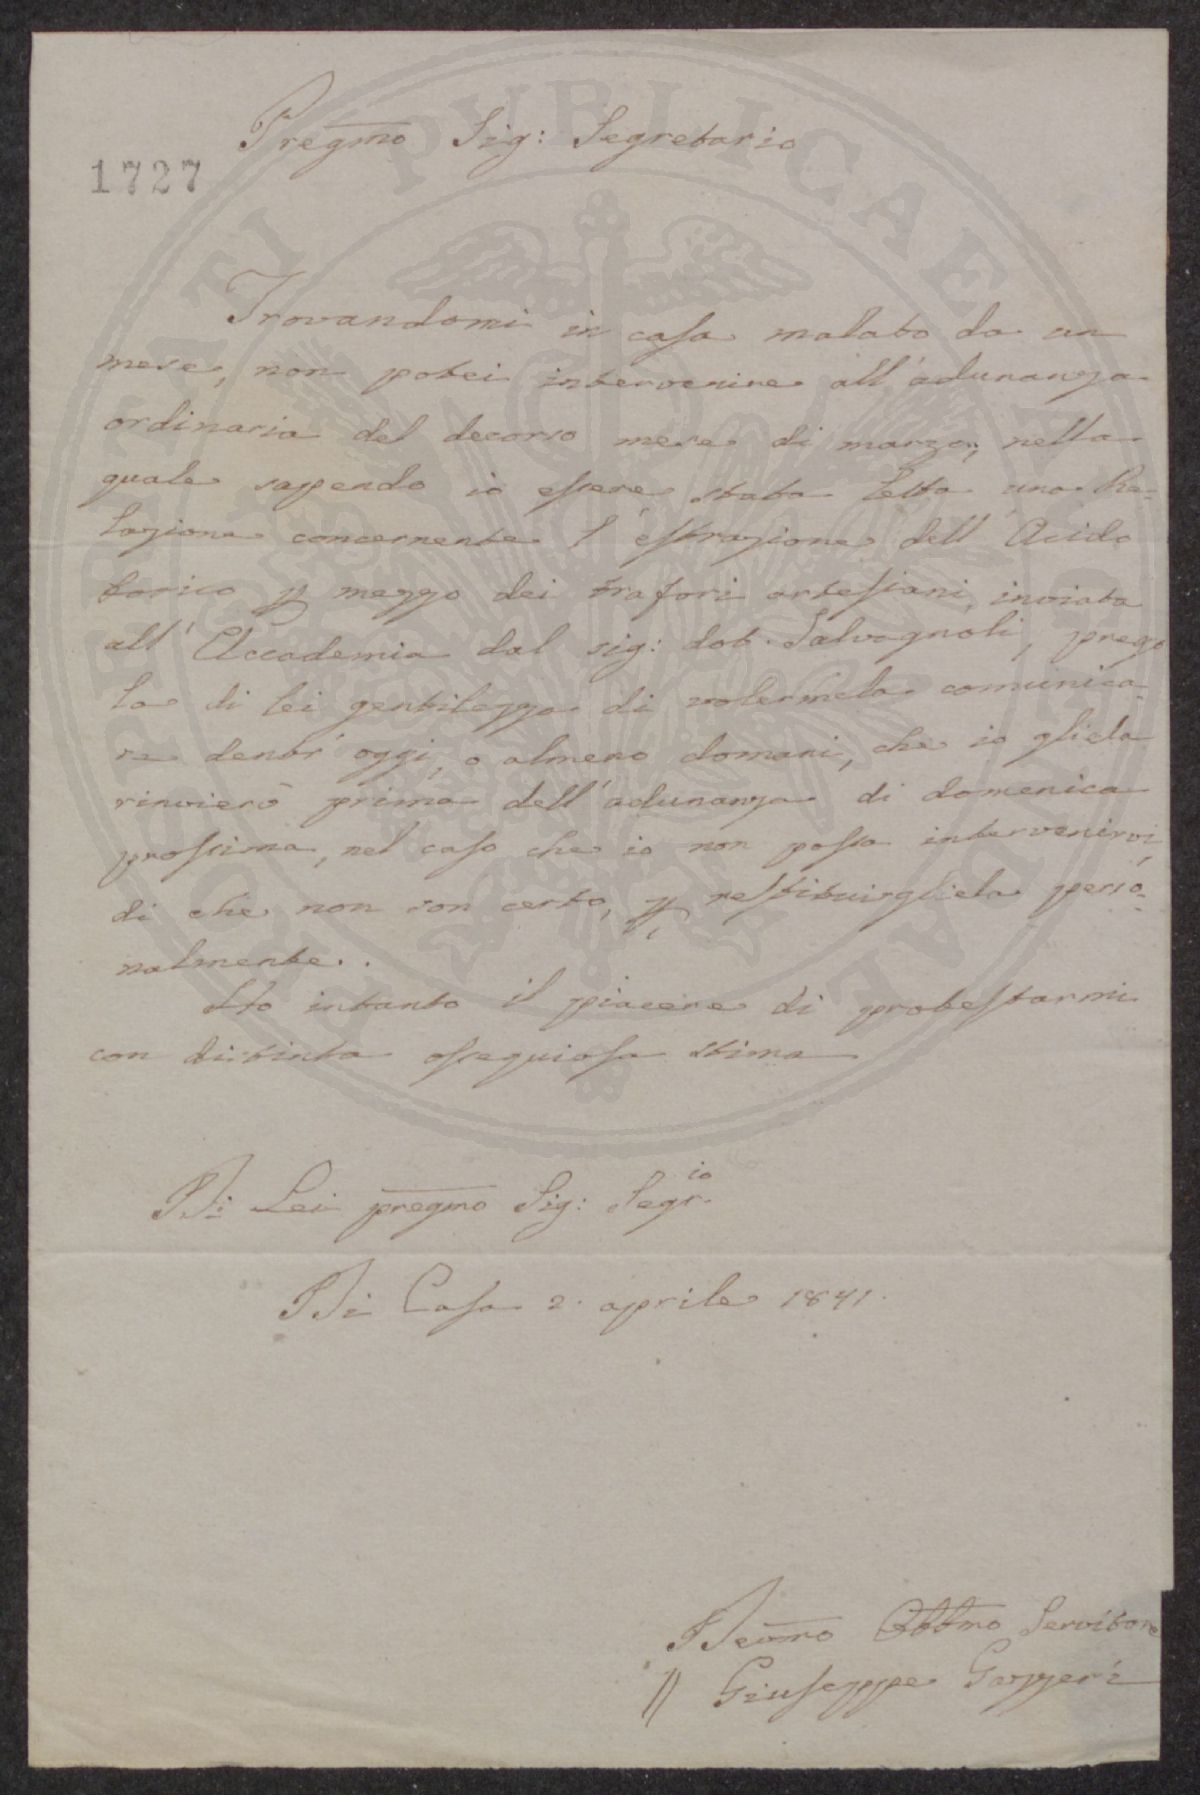 Pregmo Sig: Segretario
1727
Trovandomi in casa malato da un
mese, non potei intervenire all'adunanza
ordinaria del decorso mese di marzo, nella
quale sapendo io essere stata letta una Re-
lazione concernente l'estrazione dell'Acido
borico p mezzo dei trafori artesiani, inviata
all'Accademia dal sig: dot. Salvagnoli, prego
la di lei gentilezza di volermela comunica-
re dentr'oggi, o almeno domani, che io gliela
rinvierò prima dell'adunanza di domenica
prossima, nel caso che io non possa intervenirvi,
di che non son certo, p restituirgliela perso-
nalmente.
Ho intanto il piacere di protestarmi
con distinta ossequiosa stima
Di Lei pregmo Sig: Segr.io
Di Casa 2. aprile 1841.
Devmo Obbmo Servitore
Giuseppe Gazzeri
PUBLICAE